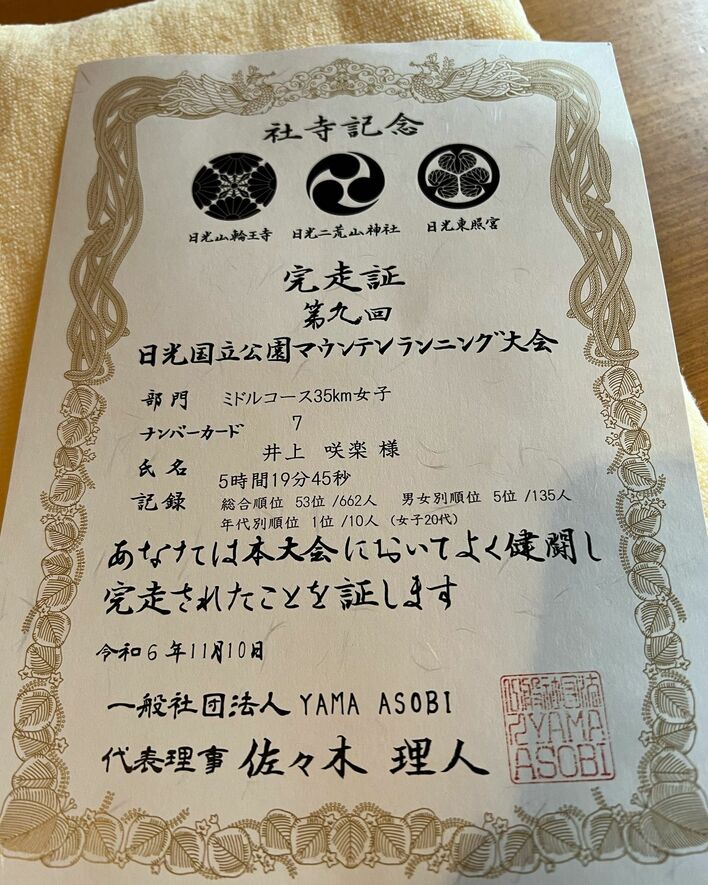 社寺記念
日光山輪王寺 日光二荒山神社 日光東照宮
完走証
第九回
日光国立公園マウンテンランニング大会
部門 ミドルコース35km女子
ナンバーカード 7
氏名 井上 咲楽 様
記録 5時間19分45秒
総合順位 53位/662人 男女別順位 5位/135人
年代別順位 1位/10人 (女子20代)
あなたは本大会においてよく健闘し
完走されたことを証します
令和6年11月10日
一般社団法人 YAMA ASOBI
代表理事 佐々木 理人
YAMA
ASOBI